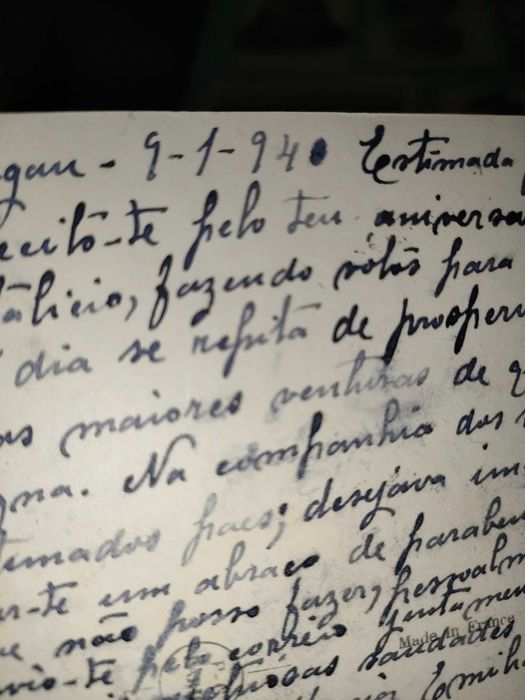 gau - 9-1-940 Estimada
ecito-te pelo teu aniversa
talicio, fazendo vótos para
dia se repita de prosperi
as maiores venturas de q
gna. Na companhia dos
timados paes; desejava im
ar-te um abraço de parabens
e não posso fazer, pessoalm
vio-te pelo correio juntamen
tuosas saudades
Emili
Made in France